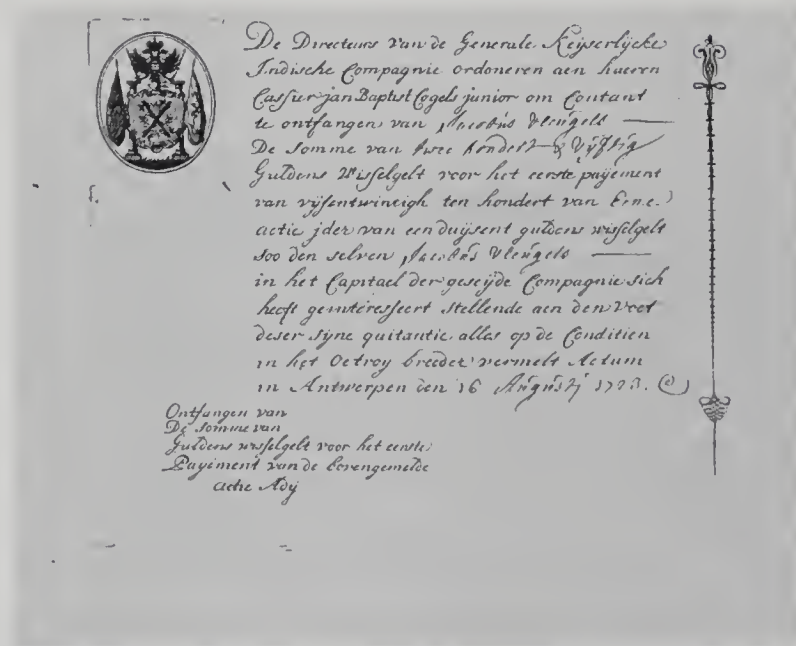 De Directeurs van de Generale Keijserlijcke
Indische Compagnie ordoneren aen hueren
Cassier jan Baptist Cogels junior om Contant
te ontfangen van Jacobus Vleugels
De somme van twee hondert & Vijftig
Guldens Wisselgelt voor het eerste paijement
van vijfentwintigh ten hondert van Eene
actie jder van een duijsent guldens wisselgelt
soo den selven Jacobus Vleugels
in het Capitael der geseijde Compagnie sich
heeft geinteresseert stellende aen den Voet
deser sijne quitantie alles op de Conditien
in het Octroy breeder vermelt Actum
in Antwerpen den 16 Augustij 1723.
Ontfangen van
De somme van
Guldens wisselgelt voor het eerste
Payement van de bovengemelde
actie Adij